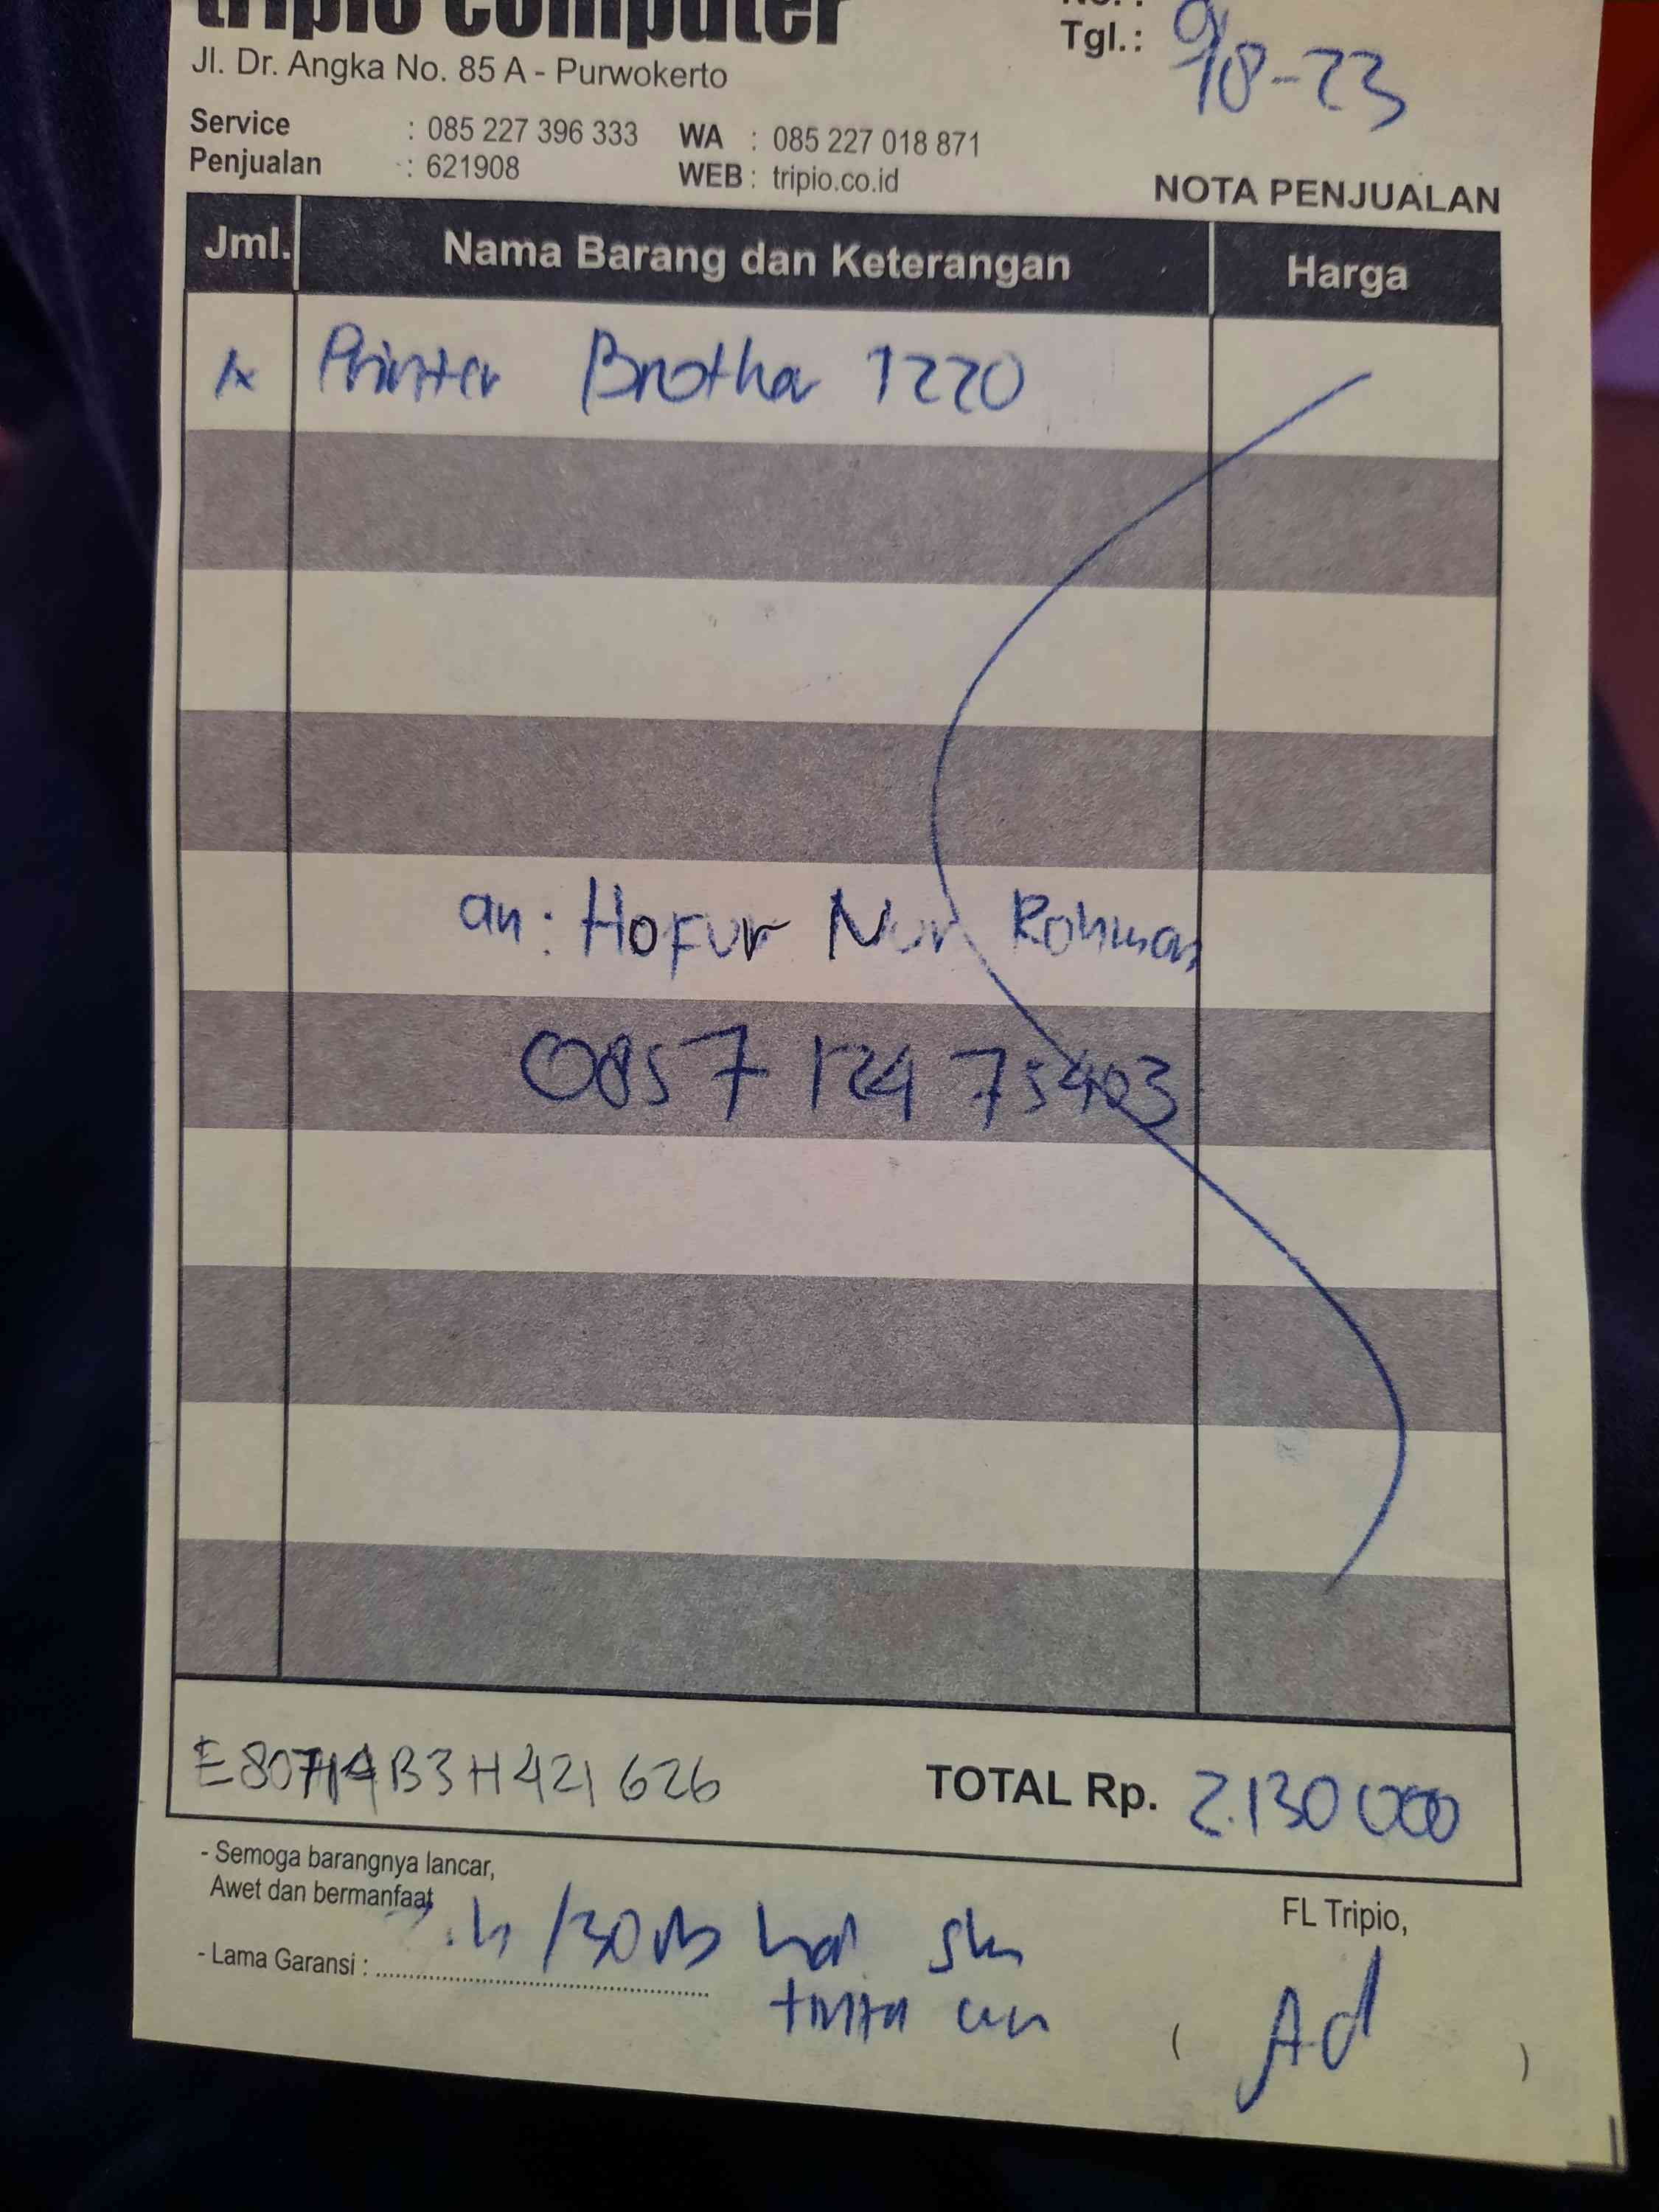 tripio computer
No. :
Tgl.: 9/8-23
Jl. Dr. Angka No. 85 A - Purwokerto
Service : 085 227 396 333 WA : 085 227 018 871
Penjualan : 621908 WEB : tripio.co.id
NOTA PENJUALAN
Jml. Nama Barang dan Keterangan Harga
1x Printer Brother 1220
an: Hofur Nur Rohman
0857 124 75403
E80714B3H421626 TOTAL Rp. 2.130 000
- Semoga barangnya lancar,
Awet dan bermanfaat
- Lama Garansi :
tinta
FL Tripio,
( Ad )